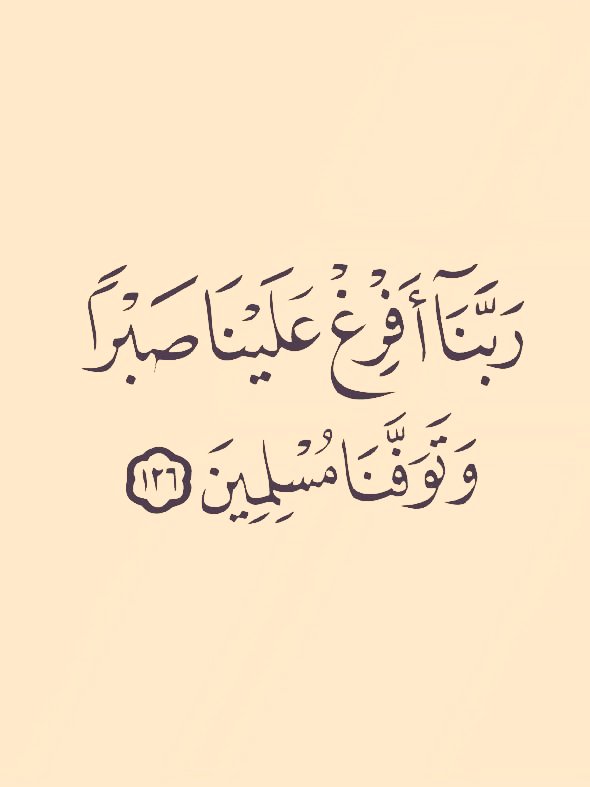 رَبَّنَآ أَفْرِغْ عَلَيْنَا صَبْرًا
وَتَوَفَّنَا مُسْلِمِينَ ١٢٦